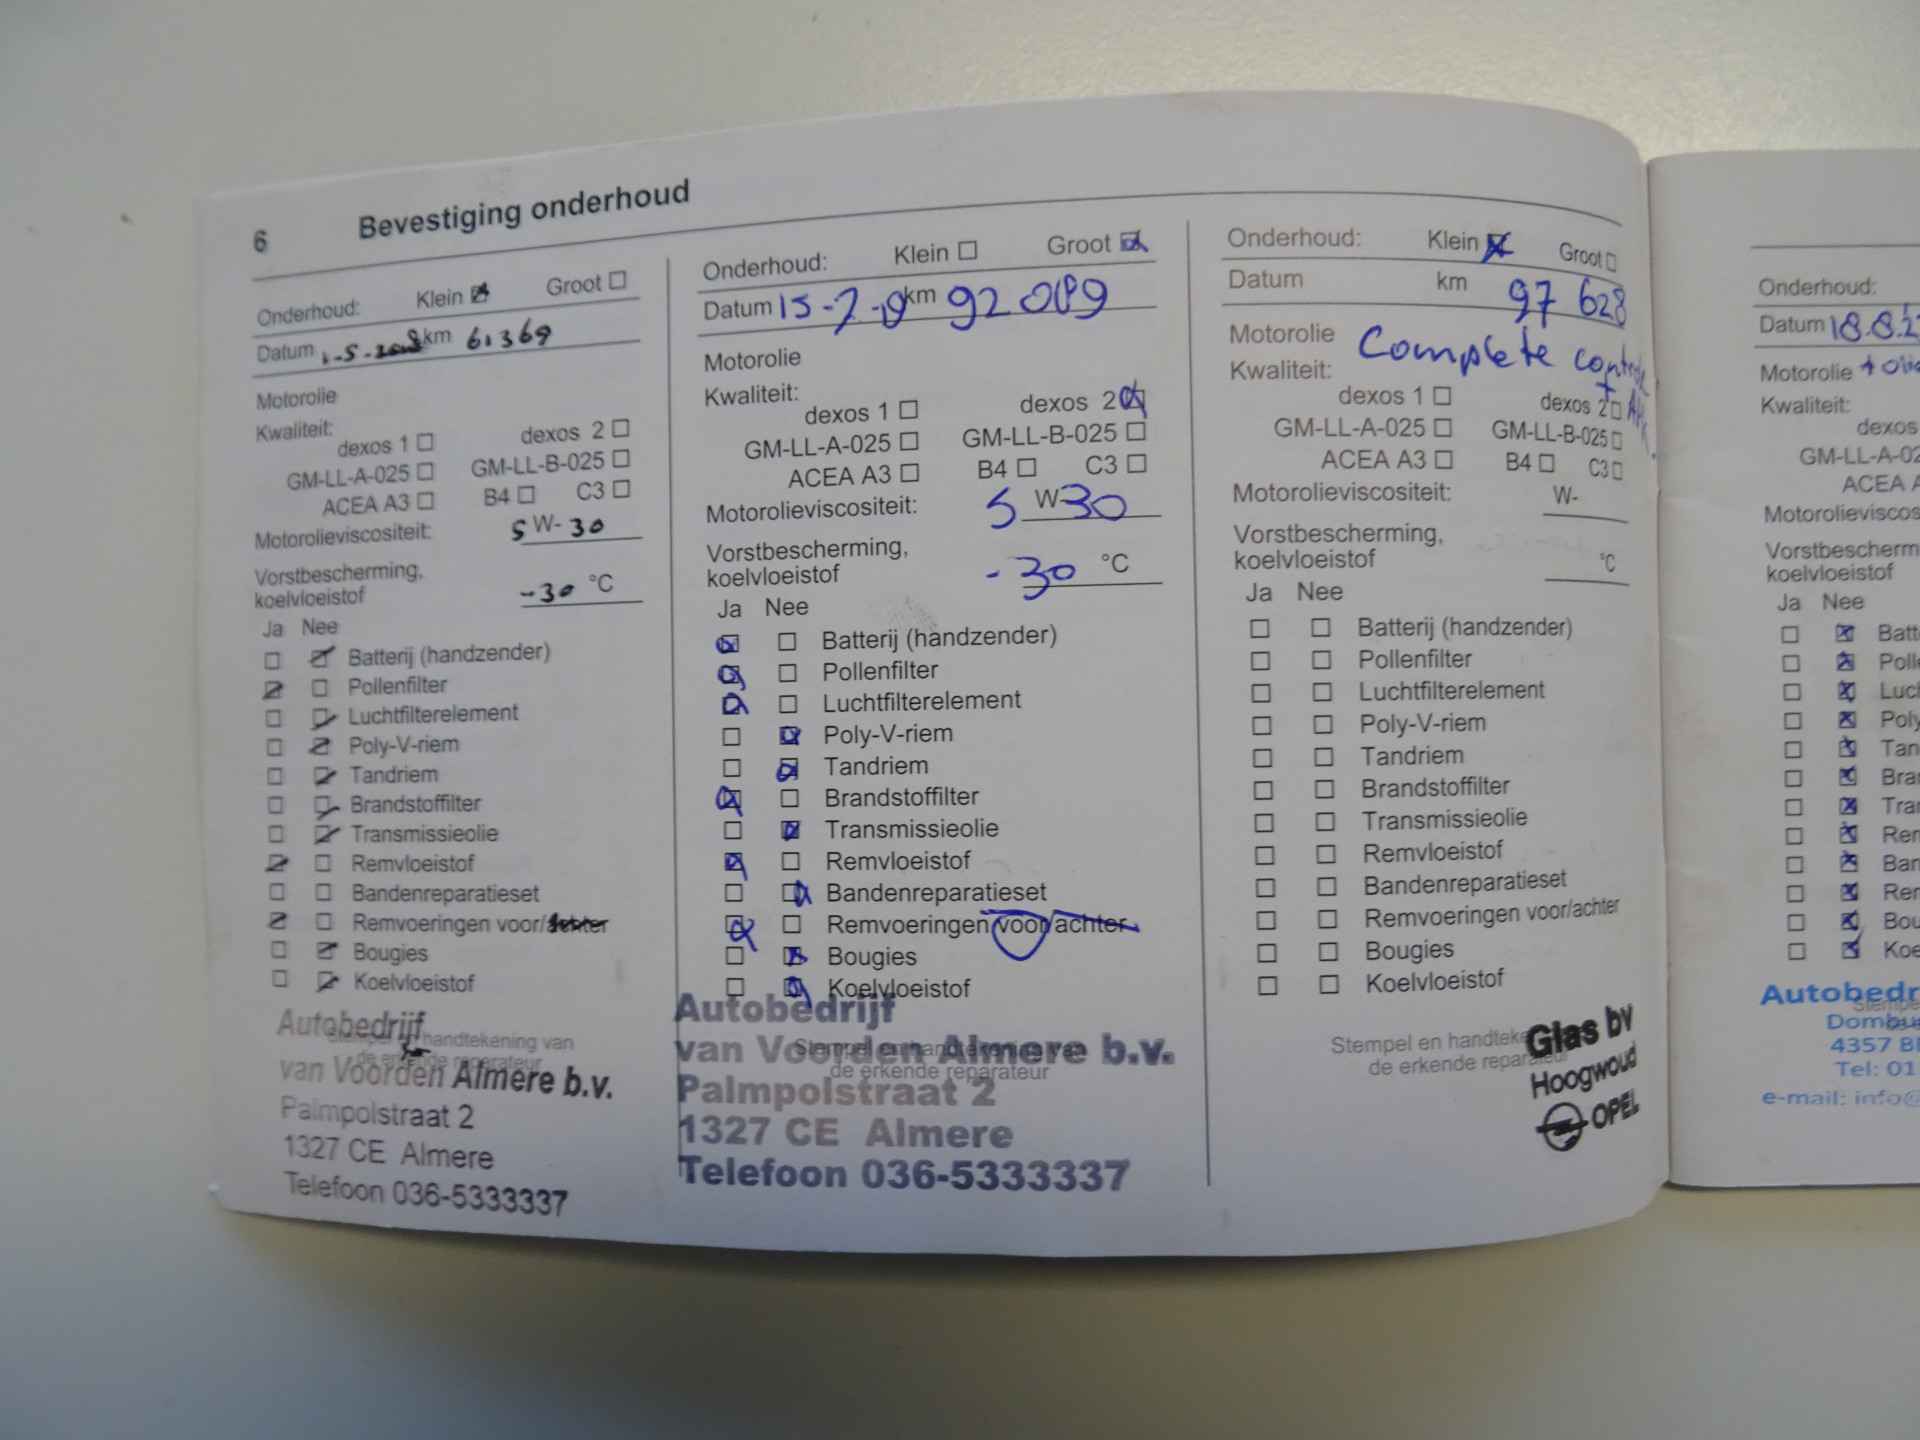 6 Bevestiging onderhoud
Onderhoud: Klein Groot
Datum 1-5-2018 km 61369
Motorolie
Kwaliteit:
dexos 1 dexos 2
GM-LL-A-025 GM-LL-B-025
ACEA A3 B4 C3
Motorolieviscositeit: 5 W- 30
Vorstbescherming,
koelvloeistof -30 °C
Ja Nee
Batterij (handzender)
Pollenfilter
Luchtfilterelement
Poly-V-riem
Tandriem
Brandstoffilter
Transmissieolie
Remvloeistof
Bandenreparatieset
Remvoeringen voor/achter
Bougies
Koelvloeistof
Stempel en handtekening van
de erkende reparateur
Autobedrijf
van Voorden Almere b.v.
Palmpolstraat 2
1327 CE Almere
Telefoon 036-5333337
Onderhoud: Klein Groot
Datum 15-7-19 km 92089
Motorolie
Kwaliteit:
dexos 1 dexos 2
GM-LL-A-025 GM-LL-B-025
ACEA A3 B4 C3
Motorolieviscositeit: 5 W-30
Vorstbescherming,
koelvloeistof -30 °C
Ja Nee
Batterij (handzender)
Pollenfilter
Luchtfilterelement
Poly-V-riem
Tandriem
Brandstoffilter
Transmissieolie
Remvloeistof
Bandenreparatieset
Remvoeringen voor/achter
Bougies
Koelvloeistof
Stempel en handtekening van
de erkende reparateur
Autobedrijf
van Voorden Almere b.v.
Palmpolstraat 2
1327 CE Almere
Telefoon 036-5333337
Onderhoud: Klein Groot
Datum km 97 628
Motorolie Complete controle
+ APK.
Kwaliteit:
dexos 1 dexos 2
GM-LL-A-025 GM-LL-B-025
ACEA A3 B4 C3
Motorolieviscositeit: W-
Vorstbescherming,
koelvloeistof °C
Ja Nee
Batterij (handzender)
Pollenfilter
Luchtfilterelement
Poly-V-riem
Tandriem
Brandstoffilter
Transmissieolie
Remvloeistof
Bandenreparatieset
Remvoeringen voor/achter
Bougies
Koelvloeistof
Stempel en handteke
de erkende reparateur
Glas bv
Hoogwoud
OPEL
Onderhoud:
Datum 18.8.2
Motorolie + olie
Kwaliteit:
dexos
GM-LL-A-02
ACEA A
Motorolieviscos
Vorstbescherm
koelvloeistof
Ja Nee
Batt
Polle
Luc
Poly
Tan
Bra
Tra
Rem
Ban
Rem
Bou
Koe
Autobedr
Dombu
4357 B
Tel: 01
e-mail: info@